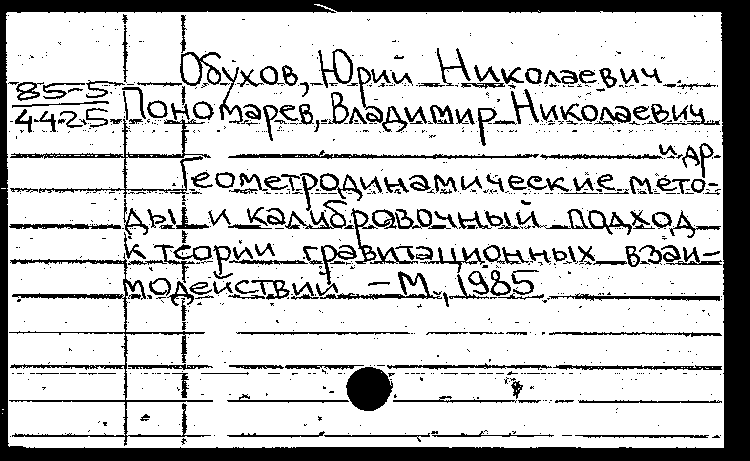 Обухов, Юрий Николаевич
85-5
4425
Пономарев, Владимир Николаевич
и др
Геометродинамические мето-
ды и калибровочный подход
к теории гравитационных взаи-
модействий – М., 1985